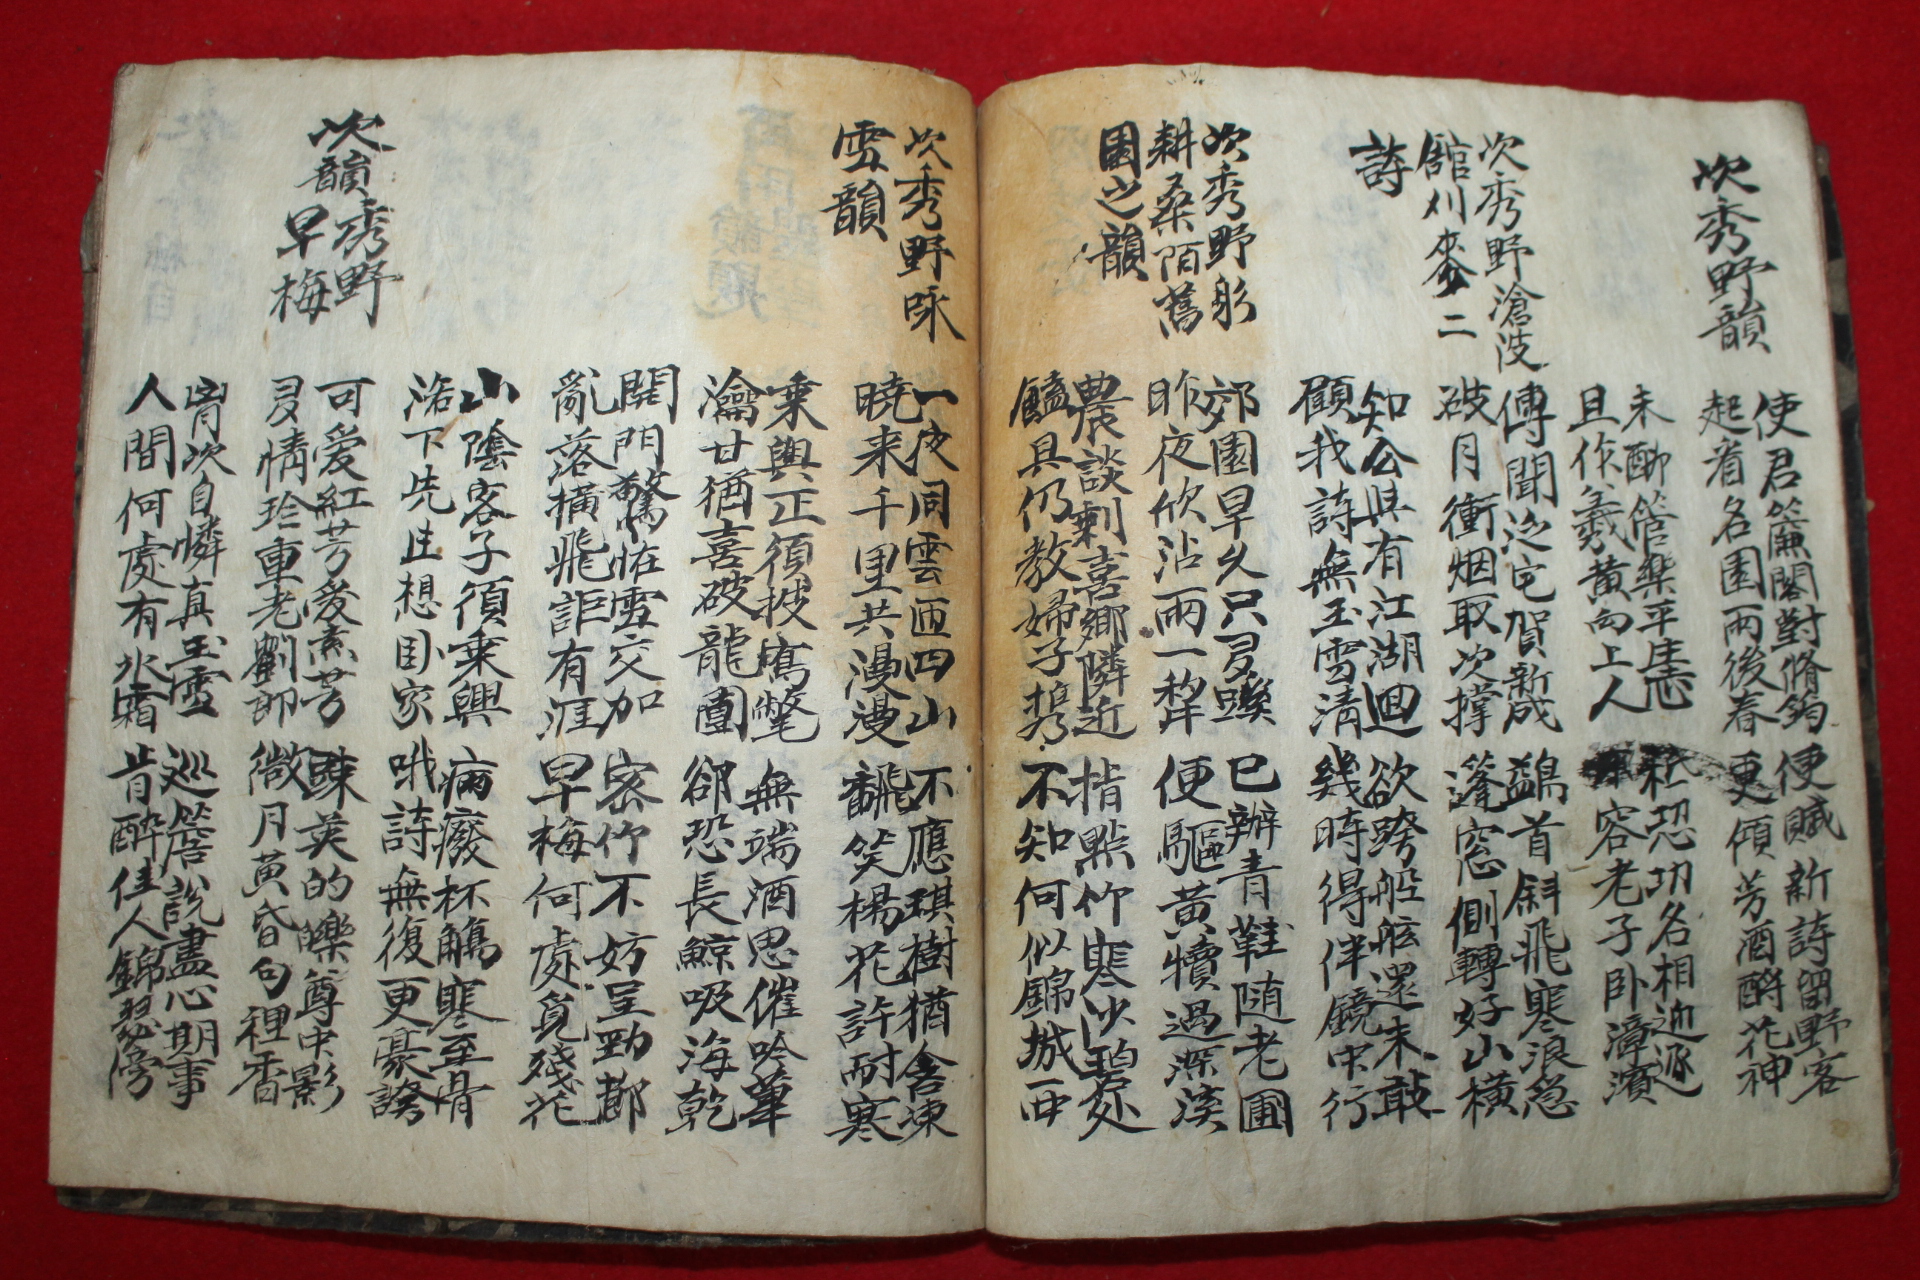 次秀野韻
使君簾閣對脩筠
起看名園雨後春
便賦新詩留野客
更傾芳酒酹花神
未酬管樂平生志
且作羲黃向上人
秖恐功名相迫逐
容老子卧漳濱
次秀野滄波
館刈麥二
詩
傳聞迩宅賀新成
破月衝烟取次撑
鷁首斜飛寒浪急
蓬窓側轉好山橫
知公具有江湖迴
顧我詩無玉雪清
欲跨船舷還未敢
幾時得伴鏡中行
次秀野躬
耕桑陌舊
園之韻
郊園早久只多蹊
昨夜欣沾雨一犂
已辦青鞋随老圃
便驅黃犢過深溪
農談剩喜鄉隣近
饁具仍教婦子携
指點竹寒沙碧処
不知何似錦城西
次秀野咏
雪韻
一夜同雲匝四山
曉来千里共漫漫
不應琪樹猶含凍
飜笑楊花許耐寒
乗興正須披鶴氅
瀹甘猶喜破龍團
無端酒思催吟筆
卻恐長鯨吸海乾
開門驚怪雪交加
亂落橫飛詎有涯
密竹不妨呈勁節
早梅何處覓殘花
山陰客子須乗興
洛下先生想卧家
病癈杯觴寒至骨
哦詩無復更豪誇
次秀野
韻早梅
可愛紅芳愛素芳
多情珍重老劉郎
踈英的皪尊中影
微月黃昏句裡香
胷次自憐真玉雪
人間何處有氷霜
巡簷說盡心期事
肯醉佳人錦瑟傍